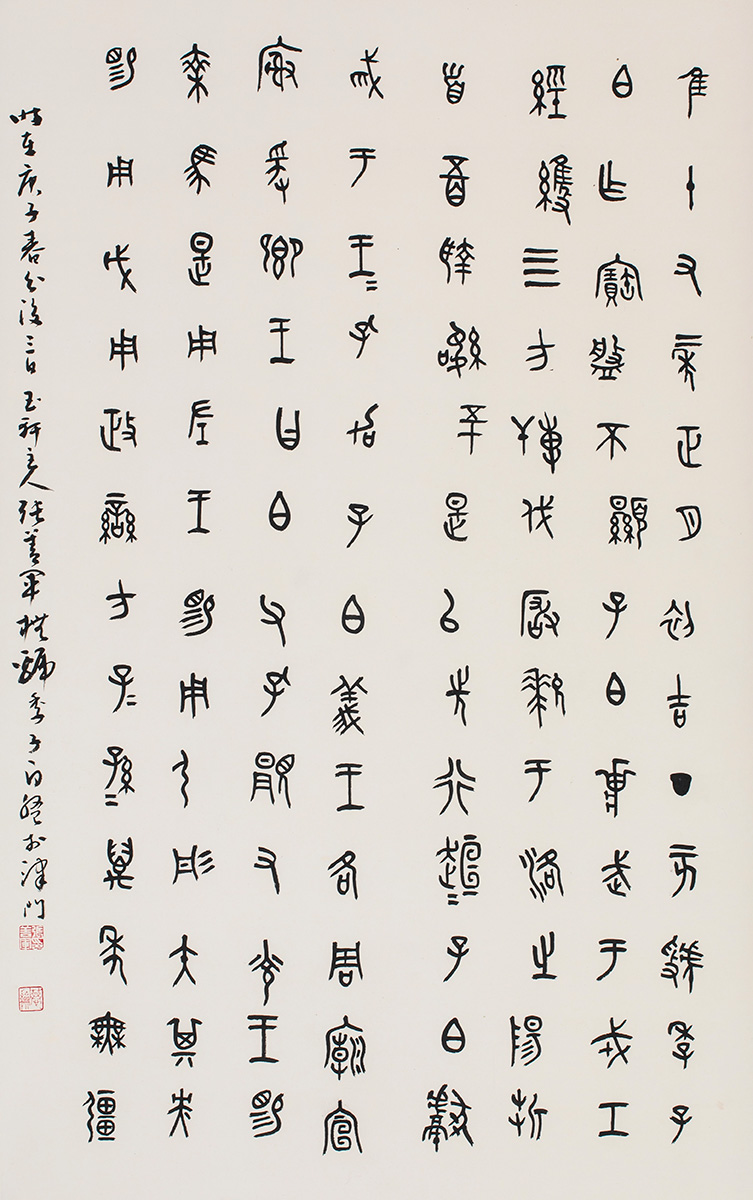 隹十又二年正月初吉丁亥虢季子
白乍寶盤不顯子白壯武于戎工
經維四方搏伐玁狁于洛之陽折
首五百執訊五十是以先行桓〓子白獻
馘于王〓孔加子白義王各周廟宣
榭爰鄉王曰白父孔顯又光王賜
乘馬是用左王賜用弓彤矢其央
賜用戉用政蠻方子〓孫〓萬年無疆
時在庚子春分後三日玉軒主人張善軍橅虢季子白盤於津門